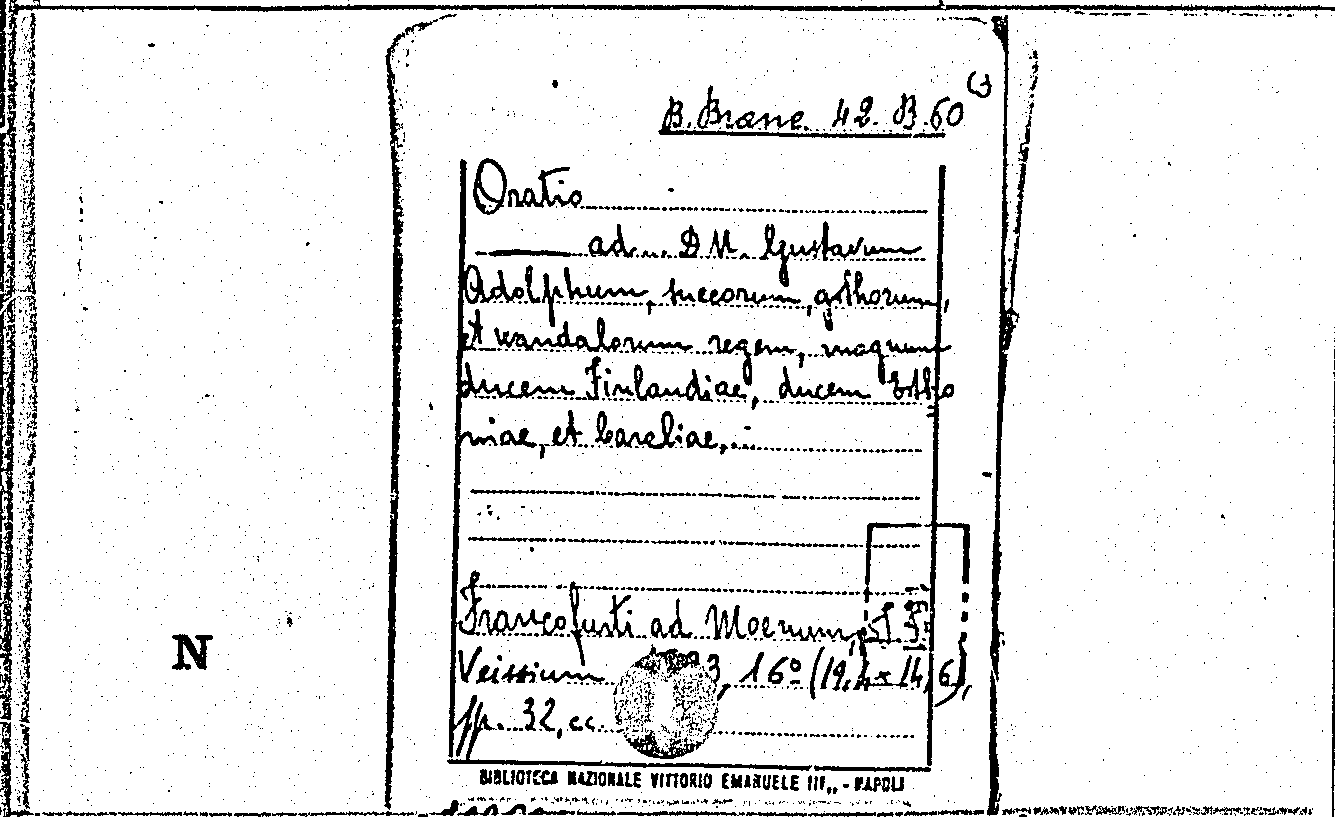 B. Branc. 42. B. 60 (3
Oratio
ad... D M. Gustavum
Adolphum, suecorum, gothorum,
et wandalorum regem, magnum
ducem Finlandiae, ducem Estho
niae, et Careliae,...
Francofurti ad Moenum,
Veissium 3, 16º (19,4 x 14,6),
pp. 32, cc.
N
BIBLIOTECA NAZIONALE VITTORIO EMANUELE III,, - NAPOLI